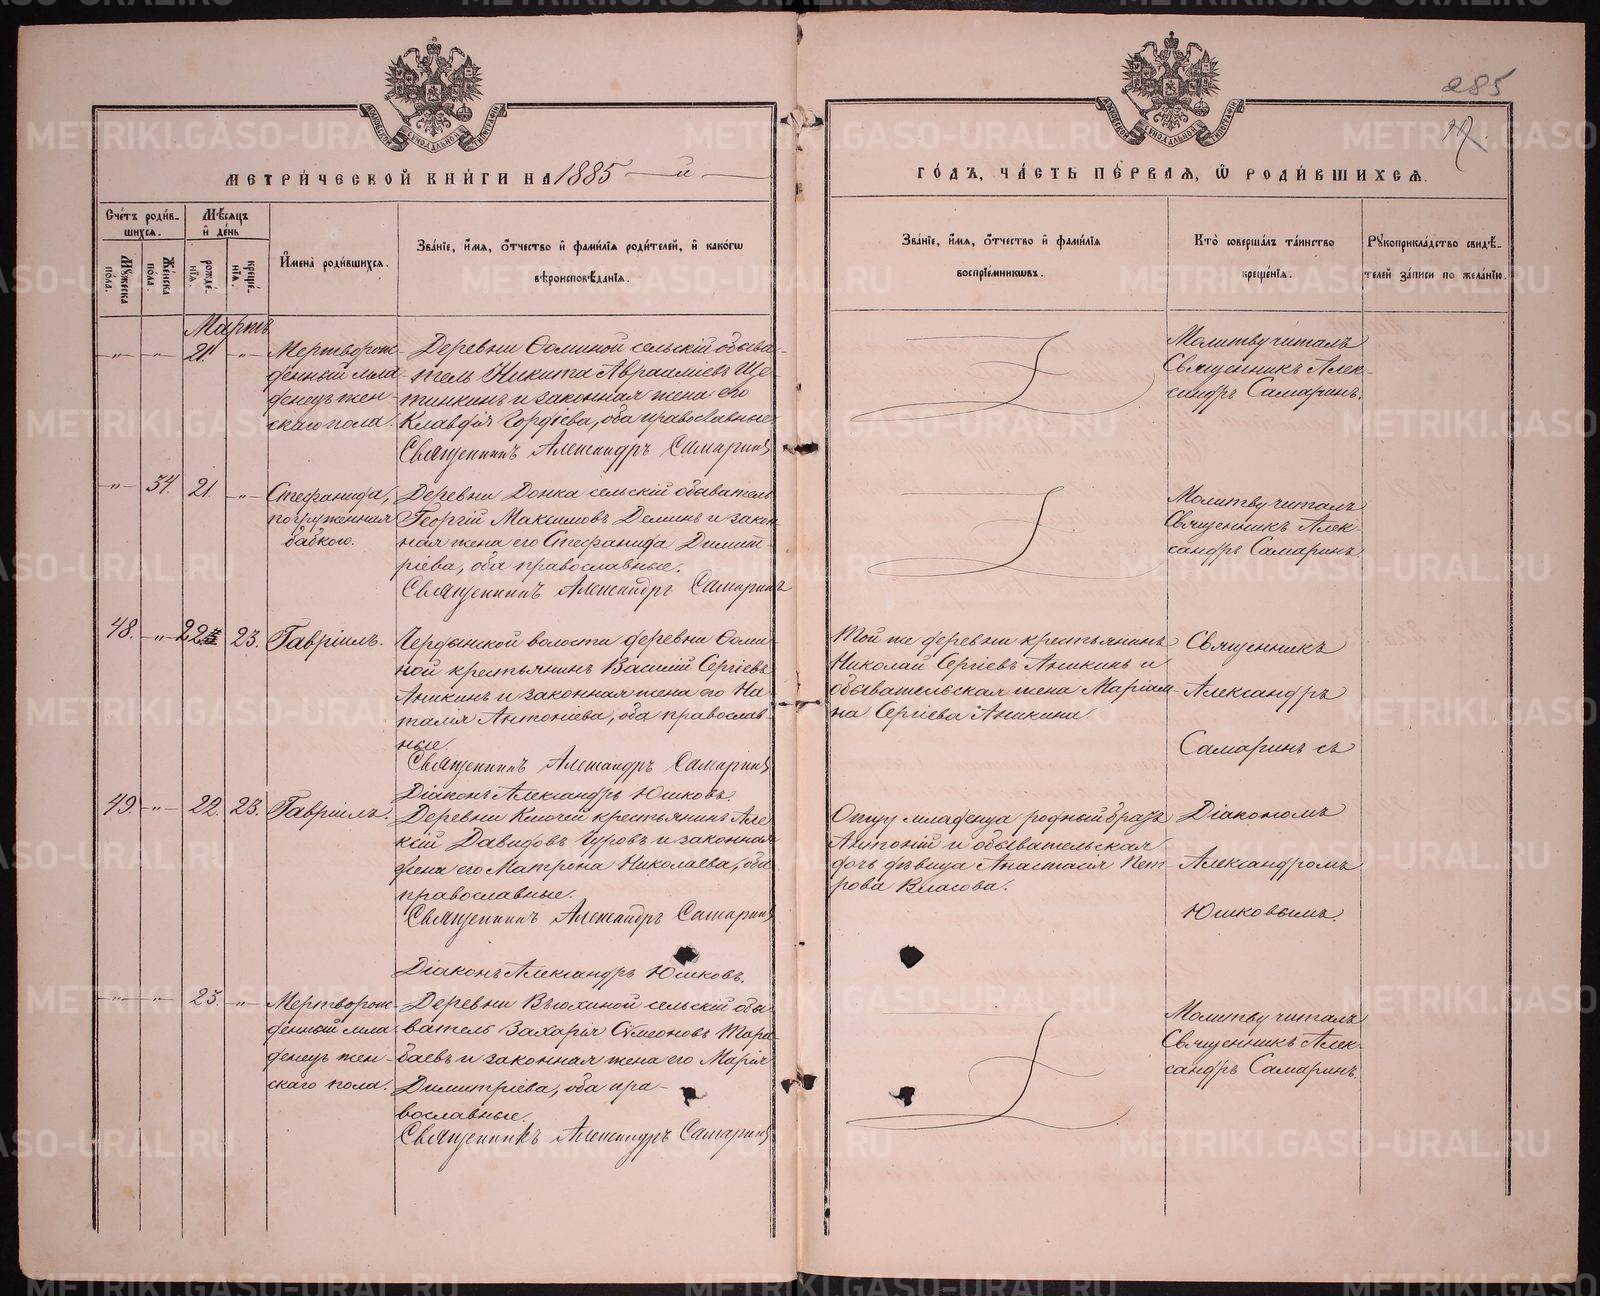 285
МЕТРИЧЕСКОЙ КНИГИ НА 1885 й
ГОДЪ, ЧАСТЬ ПЕРВАЯ, Ѿ РОДИВШИХСЯ.
Счетъ родившихся.
Мужеска пола.
Женска пола.
Мѣсяцъ и день
рожденія.
крещенія.
Имена родившихся.
Званіе, имя, отчество и фамилія родителей, и какогѡ
вѣроисповѣданія.
Званіе, имя, отчество и фамилія
воспріемникѡвъ.
Кто совершалъ таинство
крещенія.
Рукоприкладство свидѣ-
телей записи по желанію.
Мартъ
" " 21. "
Мертворож-
денный мла
денецъ жен-
скаго пола.
Деревни Фоминой сельскій обыва-
тель Никита Авраамiевъ Ще-
тинкинъ и законная жена его
Клавдія Гордіева, оба православные
Священникъ Александръ Самаринъ
Молитву читалъ
Священникъ Алек-
сандръ Самаринъ.
" 34. 21. "
Стефанида,
погруженная
бабкою.
Деревни Донка сельскій обыватель
Георгій Максимовъ Деминъ и закон
ная жена его Стефанида Димит-
ріева, оба православные.
Священникъ Александръ Самаринъ
Молитву читалъ
Священникъ Алек-
сандръ Самаринъ
48. " 22 23.
Гавріилъ.
Чердынской волости деревни Фоми-
ной крестьянинъ Василій Сергіевъ
Аникинъ и законная жена его На-
талія Антоніева, оба православ-
ные.
Священникъ Александръ Самаринъ
Діаконъ Александръ Юшковъ.
Той же деревни крестьянинъ
Николай Сергіевъ Аникинъ и
обывательская жена Маріам-
на Сергіева Аникина.
Священникъ
Александръ
Самаринъ съ
Діакономъ
Александромъ
Юшковымъ.
49. " 22. 23.
Гавріилъ.
Деревни Ключей крестьянинъ Але
ксій Давидовъ Чуровъ и законная
жена его Матрона Николаева, оба
православные.
Священникъ Александръ Самаринъ
Діаконъ Александръ Юшковъ.
Отцу младенца родный братъ
Антоній и обывательская
дочь дѣвица Анастасія Пет-
рова Власова.
" " 23. "
Мертворож-
денный мла
денецъ жен-
скаго пола.
Деревни Вьюхиной сельскій обы
ватель Захарія Сѵмеоновъ Тара
баевъ и законная жена его Марія
Димитріева, оба пра-
вославные.
Священникъ Александръ Самаринъ
Молитву читалъ
Священникъ Алек-
сандръ Самаринъ.
METRIKI.GASO-URAL.RU